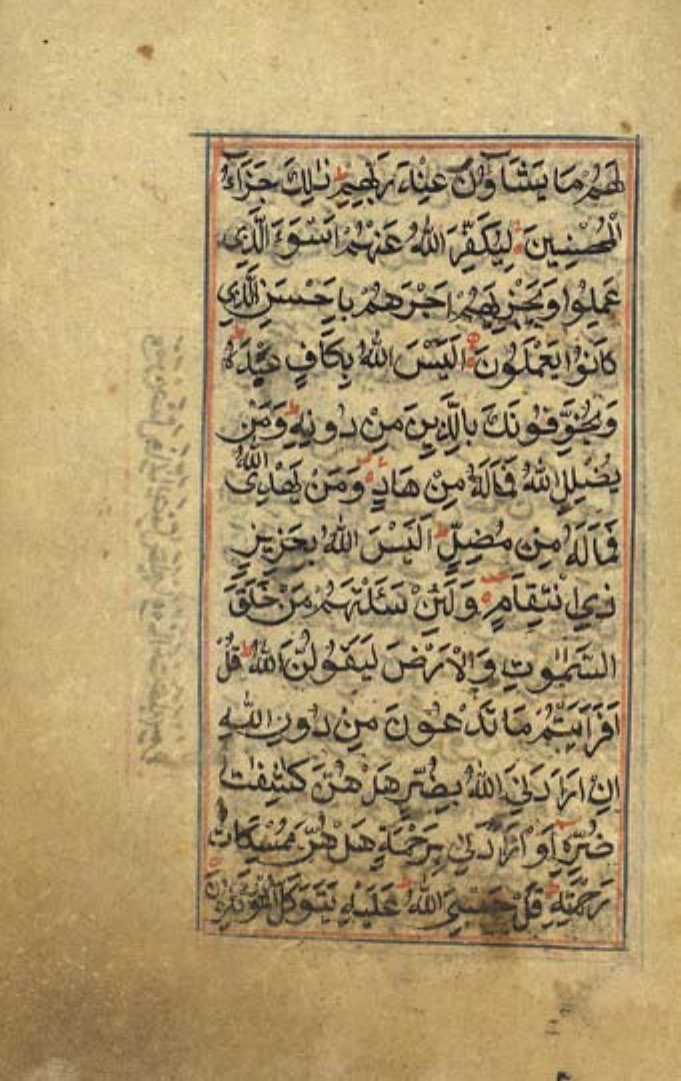 لَهُمْ مَا يَشَاؤُنَ عِنْدَ رَبِّهِمْ ذٰلِكَ جَزَاءُ
الْمُحْسِنِينَ لِيُكَفِّرَ اللهُ عَنْهُمْ اَسْوَءَ الَّذِي
عَمِلُوا وَيَجْزِيَهُمْ اَجْرَهُمْ بِاَحْسَنِ الَّذِي
كَانُوا يَعْمَلُونَ اَلَيْسَ اللهُ بِكَافٍ عَبْدَهُ
وَيُخَوِّفُونَكَ بِالَّذِينَ مِنْ دُونِهِ وَمَنْ
يُضْلِلِ اللهُ فَمَالَهُ مِنْ هَادٍ وَمَنْ يَهْدِي اللهُ
فَمَالَهُ مِنْ مُضِلٍّ اَلَيْسَ اللهُ بِعَزِيزٍ
ذِي انْتِقَامٍ وَلَئِنْ سَئَلْتَهُمْ مَنْ خَلَقَ
السَّمٰوٰتِ وَالْاَرْضَ لَيَقُولُنَّ اللهُ قُلْ
اَفَرَاَيْتُمْ مَا تَدْعُونَ مِنْ دُونِ اللهِ
اِنْ اَرَادَنِيَ اللهُ بِضُرٍّ هَلْ هُنَّ كٰشِفٰتُ
ضُرِّهِ اَوْ اَرَادَنِي بِرَحْمَةٍ هَلْ هُنَّ مُمْسِكَاتُ
رَحْمَتِهِ قُلْ حَسْبِيَ اللهُ عَلَيْهِ يَتَوَكَّلُ